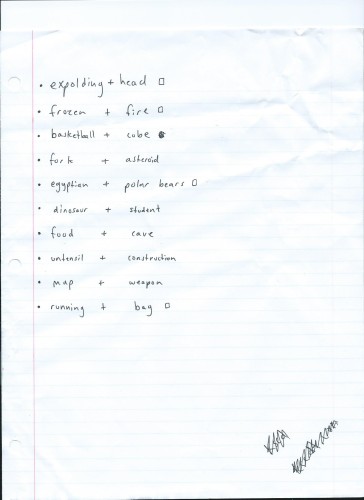 • expolding + head □
• frozen + fire □
• basketball + cube ■
• fork + asteroid
• egyptian + polar bears □
• dinosaur + student
• food + cave
• untensil + construction
• map + weapon
• running + bag □